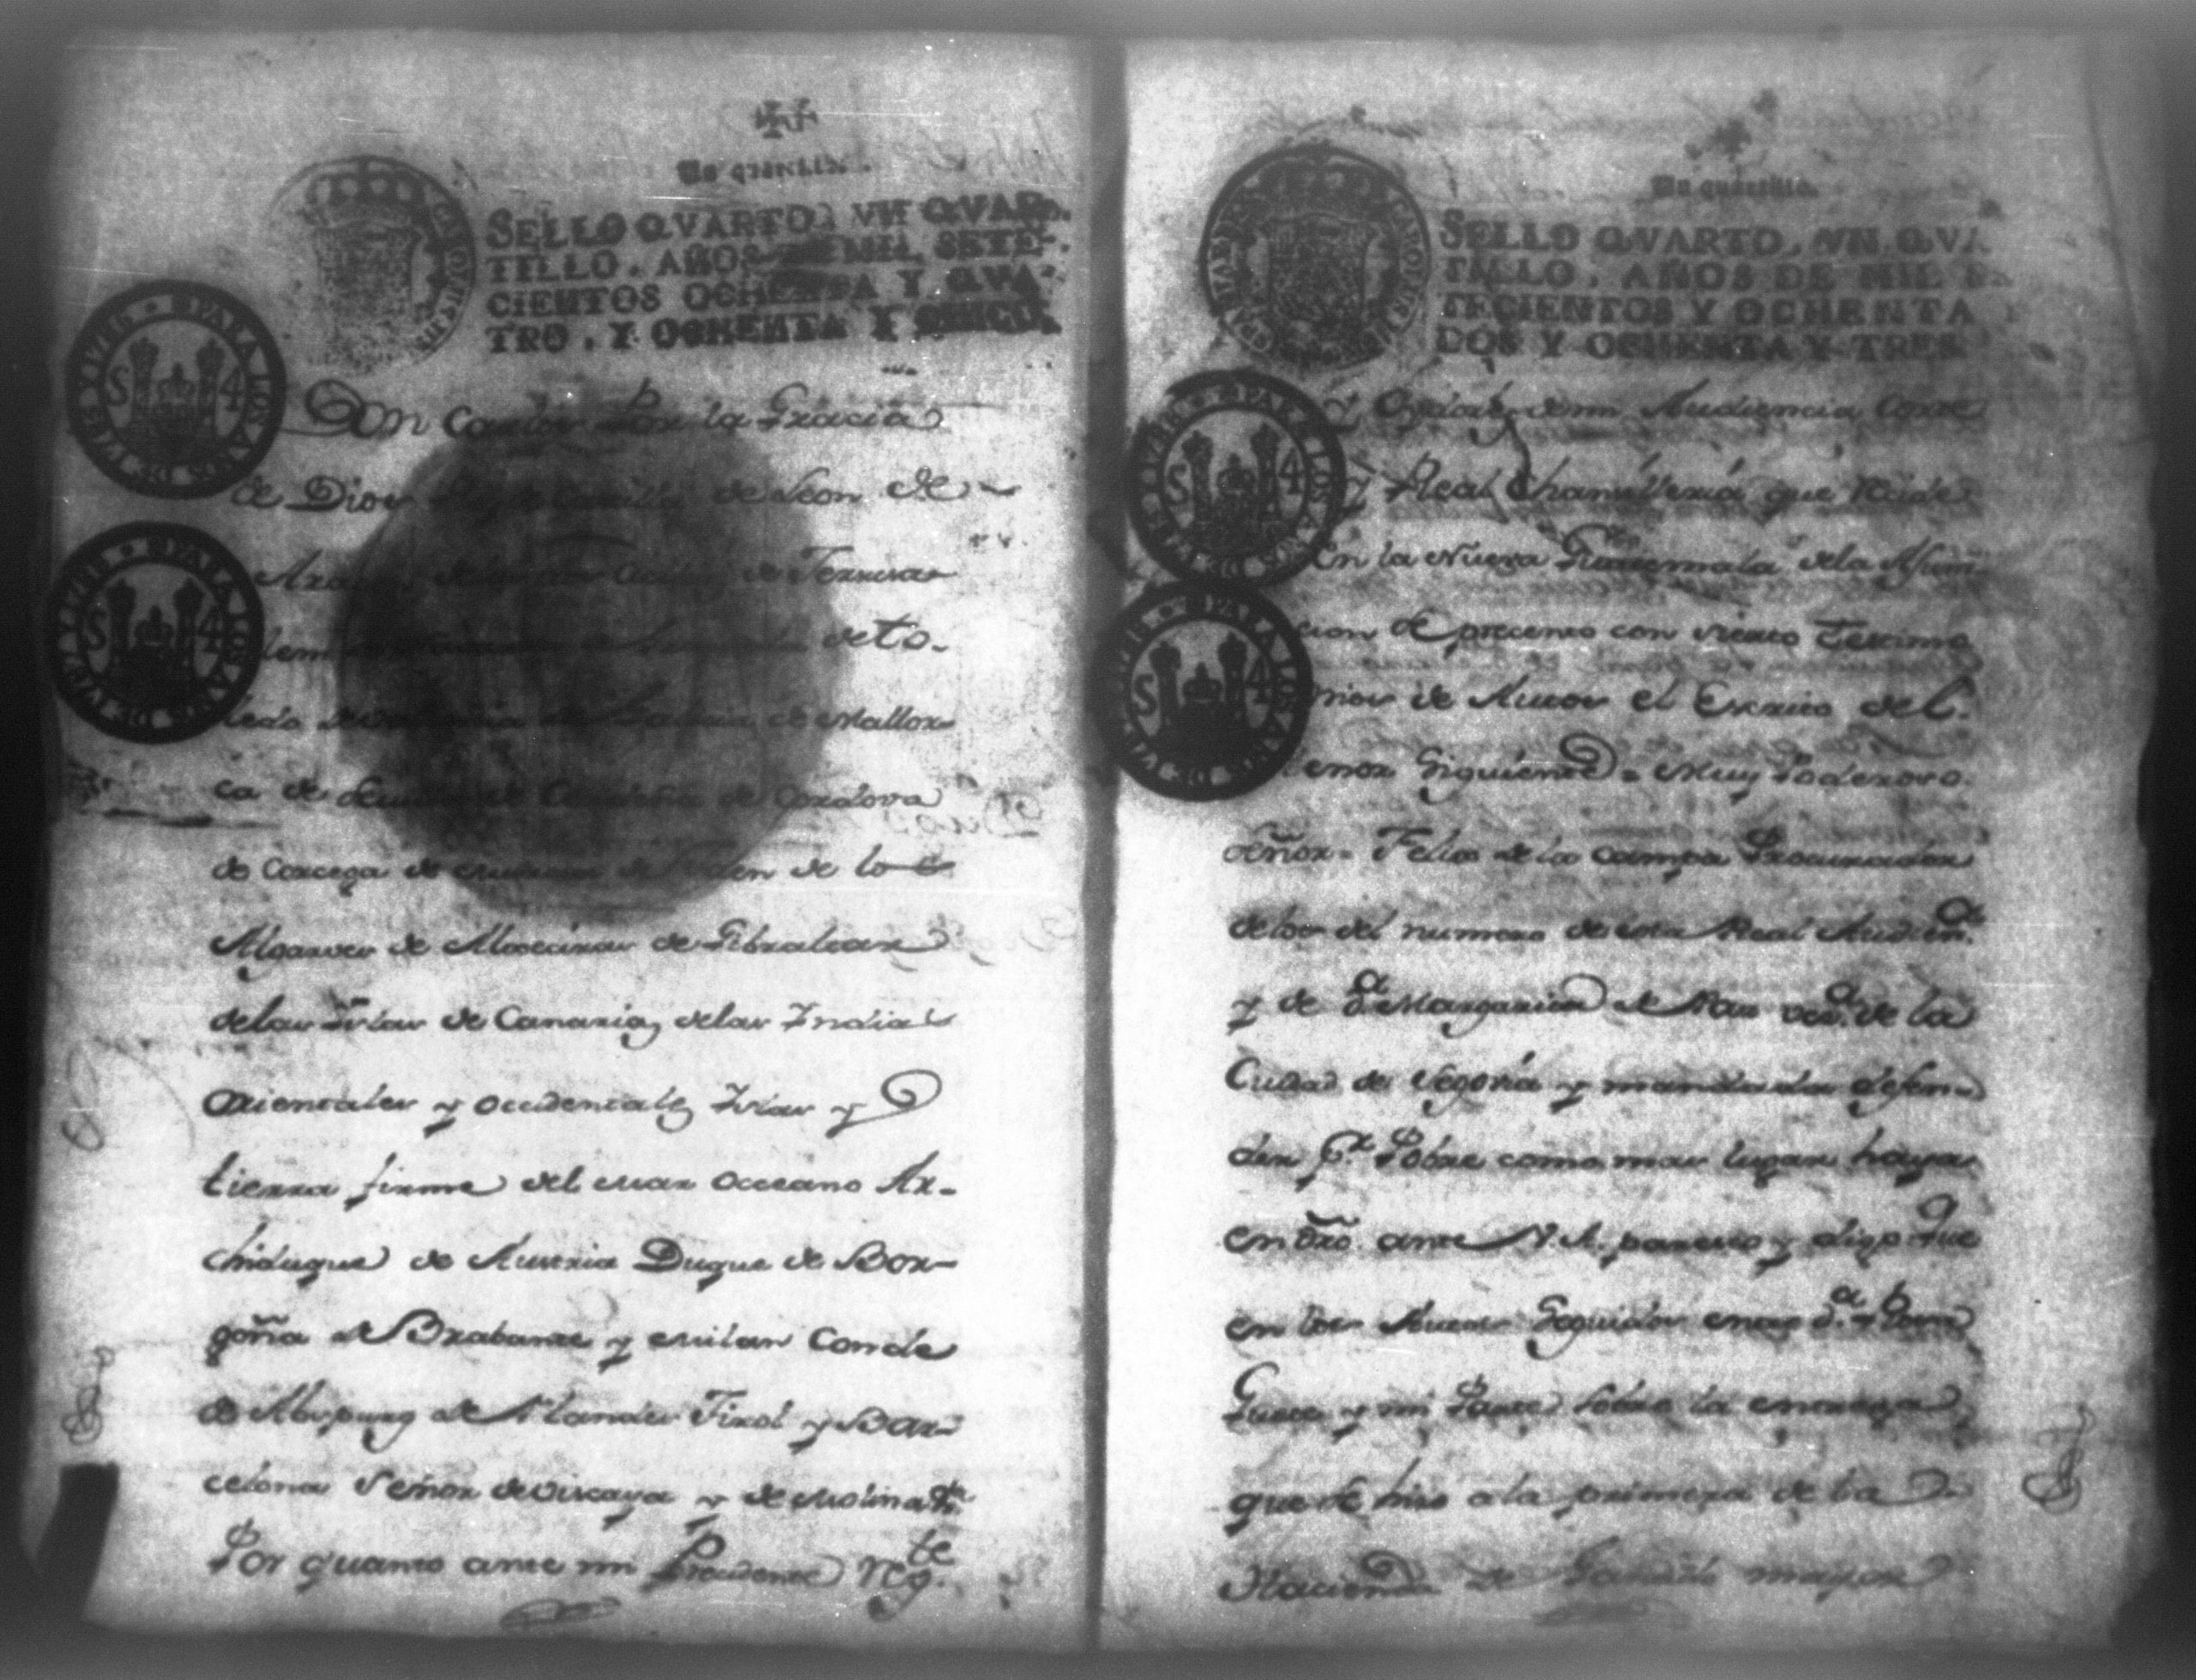 Un quartillo.
SELLO QVARTO, VN QVAR-
TILLO, AÑOS DE MIL SETE-
CIENTOS OCHENTA Y QVA-
TRO, Y OCHENTA Y CINCO.
Don Carlos Por la Gracia
de Dios Rey de Castilla de Leon de
Aragon de las dos Cicilias de Jerusa
lem de Navarra de Granada de To-
ledo de Valencia de Galicia de Mallor
ca de Sevilla de Cerdeña de Cordova
de Corcega de Murcia de Jaen de los
Algarves de Algeciras de Gibraltar
delas Yslas de Canaria, delas Indias
Orientales y occidentales, Yslas y
tierra firme del mar occeano Ar-
chiduque de Austria Duque de Bor-
goña de Brabante y Milan Conde
de Abspurg de Flandes Tirol y Bar-
celona Señor de Viscaya y de Molina &a.
Por quanto ante mi Precidente Reg.te
Un quartillo.
SELLO QVARTO, VN QVA
TILLO, AÑOS DE MIL S
TECIENTOS Y OCHENTA
DOS Y OCHENTA Y TRES
y Oydores de mi Audiencia Corte
y Real Chansilleria que recide
En la Nueva Guatemala dela Asum
cion se precento con siento Testimo
nios de Autos el Escrito del
tenor Siguiente = Muy Poderoso
Señor = Felis de la Campa Procurador
delos del numero de esta Real Audien.a
y de D.a Margarita de Paz vez.a de la
Ciudad de Segovia y mandada defen-
der p.r Pobre como mas lugar haya
en dro. ante V.A. paresco y digo que
en los Autos Seguidos entre d.a
y mi Parte Sobre la entrega
que se hiso a la primera de la
Hacienda de mayor
SPARA LOS AÑOS DE 1785 Y 1786
S 4
SPARA LOS AÑOS DE 1785 Y 1786
S 4